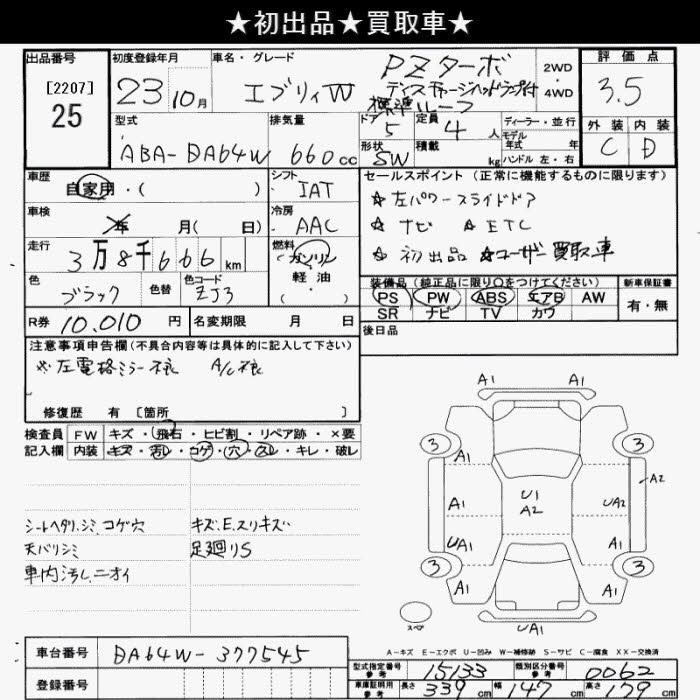 ★初出品★買取車★
出品番号 初度登録年月 車名・グレード 評価点
[2207] 25
23 10月 エブリィW PZターボ 2WD・4WD 3.5
ディスチャージヘッドランプ付
標準ルーフ
型式 排気量 ドア 定員 ディーラー・並行 外装 内装
ABA-DA64W 660cc 5 4人 モデル年式 年 C D
形状 SW 積載 kg ハンドル 左・右
車歴 自家用・( ) シフト IAT セールスポイント(正常に機能するものに限ります)
☆左パワースライドドア
車検 年 月( 日) 冷房 AAC ☆ナビ ☆ETC
走行 3万8千666km 燃料 ガソリン ☆初出品 ☆ユーザー買取車
軽油
( ・ )
色 ブラック 色替 色コード ZJ3 装備品(純正品に限り○をつけてください) 新車保証書
PS PW ABS エアB AW 有・無
R券 10.010円 名変期限 月 日 SR ナビ TV カワ
後日品
注意事項申告欄(不具合内容等は具体的に記入して下さい)
※左電格ミラー不良 A/C不良
修復歴 有 [箇所 ]
検査員 FW キズ・飛石・ヒビ割・リペア跡・×要
記入欄 内装 キズ・汚レ・コゲ・穴・スレ・キレ・破レ
シートヘタリ.シミ コゲ穴 キズ.E.スリキズ
天バリシミ 足廻りS
車内汚レ.ニオイ
A1 A1
3 3
A1 A1
A2
A1 U1 A2 UA2
UA1 A1
3 3
A1 A1
スペア UA1
A-キズ E-エクボ U-凹み W-補修跡 S-サビ C-腐食 XX-交換済
車台番号 DA64W-377545
登録番号
型式指定番号 参考 15133 類別区分番号 参考 0062
車庫証明用 参考 長さ 339cm 幅 147cm 高さ 159cm